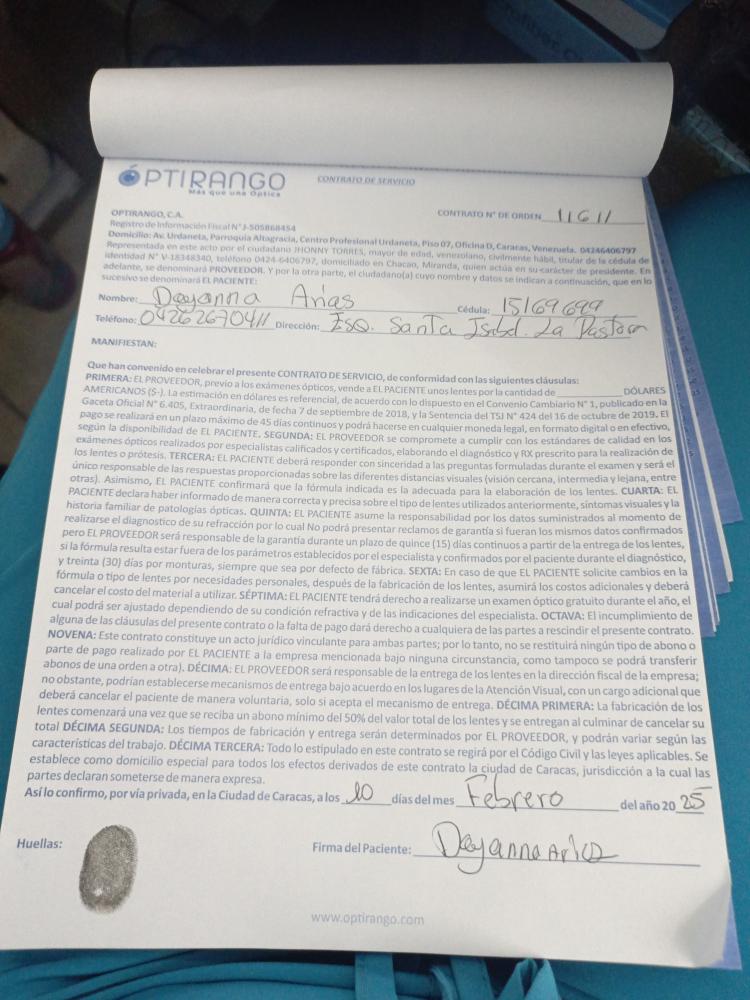 OPTIRANGO
Más que una Óptica
CONTRATO DE SERVICIO
OPTIRANGO, C.A.
CONTRATO N° DE ORDEN 11611
Registro de Información Fiscal N° J-505868454
Domicilio: Av. Urdaneta, Parroquia Altagracia, Centro Profesional Urdaneta, Piso 07, Oficina D, Caracas, Venezuela. 04246406797
Representada en este acto por el ciudadano JHONNY TORRES, mayor de edad, venezolano, civilmente hábil, titular de la cédula de
identidad N° V-18348340, teléfono 0424-6406797, domiciliado en Chacao, Miranda, quien actúa en su carácter de presidente. En
adelante, se denominará PROVEEDOR. Y por la otra parte, el ciudadano(a) cuyo nombre y datos se indican a continuación, que en lo
sucesivo se denominará EL PACIENTE:
Nombre: Dayanna Arias Cédula: 15169699
Teléfono: 04262670411 Dirección: Esq. Santa Isabel. La Pastora
MANIFIESTAN:
Que han convenido en celebrar el presente CONTRATO DE SERVICIO, de conformidad con las siguientes cláusulas:
PRIMERA: EL PROVEEDOR, previo a los exámenes ópticos, vende a EL PACIENTE unos lentes por la cantidad de DÓLARES
AMERICANOS ($-). La estimación en dólares es referencial, de acuerdo con lo dispuesto en el Convenio Cambiario N° 1, publicado en la
Gaceta Oficial N° 6.405, Extraordinaria, de fecha 7 de septiembre de 2018, y la Sentencia del TSJ N° 424 del 16 de octubre de 2019. El
pago se realizará en un plazo máximo de 45 días continuos y podrá hacerse en cualquier moneda legal, en formato digital o en efectivo,
según la disponibilidad de EL PACIENTE. SEGUNDA: EL PROVEEDOR se compromete a cumplir con los estándares de calidad en los
exámenes ópticos realizados por especialistas calificados y certificados, elaborando el diagnóstico y RX prescrito para la realización de
los lentes o prótesis. TERCERA: EL PACIENTE deberá responder con sinceridad a las preguntas formuladas durante el examen y será el
único responsable de las respuestas proporcionadas sobre las diferentes distancias visuales (visión cercana, intermedia y lejana, entre
otras). Asimismo, EL PACIENTE confirmará que la fórmula indicada es la adecuada para la elaboración de los lentes. CUARTA: EL
PACIENTE declara haber informado de manera correcta y precisa sobre el tipo de lentes utilizados anteriormente, síntomas visuales y la
historia familiar de patologías ópticas. QUINTA: EL PACIENTE asume la responsabilidad por los datos suministrados al momento de
realizarse el diagnostico de su refracción por lo cual No podrá presentar reclamos de garantía si fueran los mismos datos confirmados
pero EL PROVEEDOR será responsable de la garantía durante un plazo de quince (15) días continuos a partir de la entrega de los lentes,
si la fórmula resulta estar fuera de los parámetros establecidos por el especialista y confirmados por el paciente durante el diagnóstico,
y treinta (30) días por monturas, siempre que sea por defecto de fábrica. SEXTA: En caso de que EL PACIENTE solicite cambios en la
fórmula o tipo de lentes por necesidades personales, después de la fabricación de los lentes, asumirá los costos adicionales y deberá
cancelar el costo del material a utilizar. SÉPTIMA: EL PACIENTE tendrá derecho a realizarse un examen óptico gratuito durante el año, el
cual podrá ser ajustado dependiendo de su condición refractiva y de las indicaciones del especialista. OCTAVA: El incumplimiento de
alguna de las cláusulas del presente contrato o la falta de pago dará derecho a cualquiera de las partes a rescindir el presente contrato.
NOVENA: Este contrato constituye un acto jurídico vinculante para ambas partes; por lo tanto, no se restituirá ningún tipo de abono o
parte de pago realizado por EL PACIENTE a la empresa mencionada bajo ninguna circunstancia, como tampoco se podrá transferir
abonos de una orden a otra). DÉCIMA: EL PROVEEDOR será responsable de la entrega de los lentes en la dirección fiscal de la empresa;
no obstante, podrían establecerse mecanismos de entrega bajo acuerdo en los lugares de la Atención Visual, con un cargo adicional que
deberá cancelar el paciente de manera voluntaria, solo si acepta el mecanismo de entrega. DÉCIMA PRIMERA: La fabricación de los
lentes comenzará una vez que se reciba un abono mínimo del 50% del valor total de los lentes y se entregan al culminar de cancelar su
total DÉCIMA SEGUNDA: Los tiempos de fabricación y entrega serán determinados por EL PROVEEDOR, y podrán variar según las
características del trabajo. DÉCIMA TERCERA: Todo lo estipulado en este contrato se regirá por el Código Civil y las leyes aplicables. Se
establece como domicilio especial para todos los efectos derivados de este contrato la ciudad de Caracas, jurisdicción a la cual las
partes declaran someterse de manera expresa.
Así lo confirmo, por vía privada, en la Ciudad de Caracas, a los 10 días del mes Febrero del año 2025
Huellas:
Firma del Paciente: Dayanna Arias
www.optirango.com